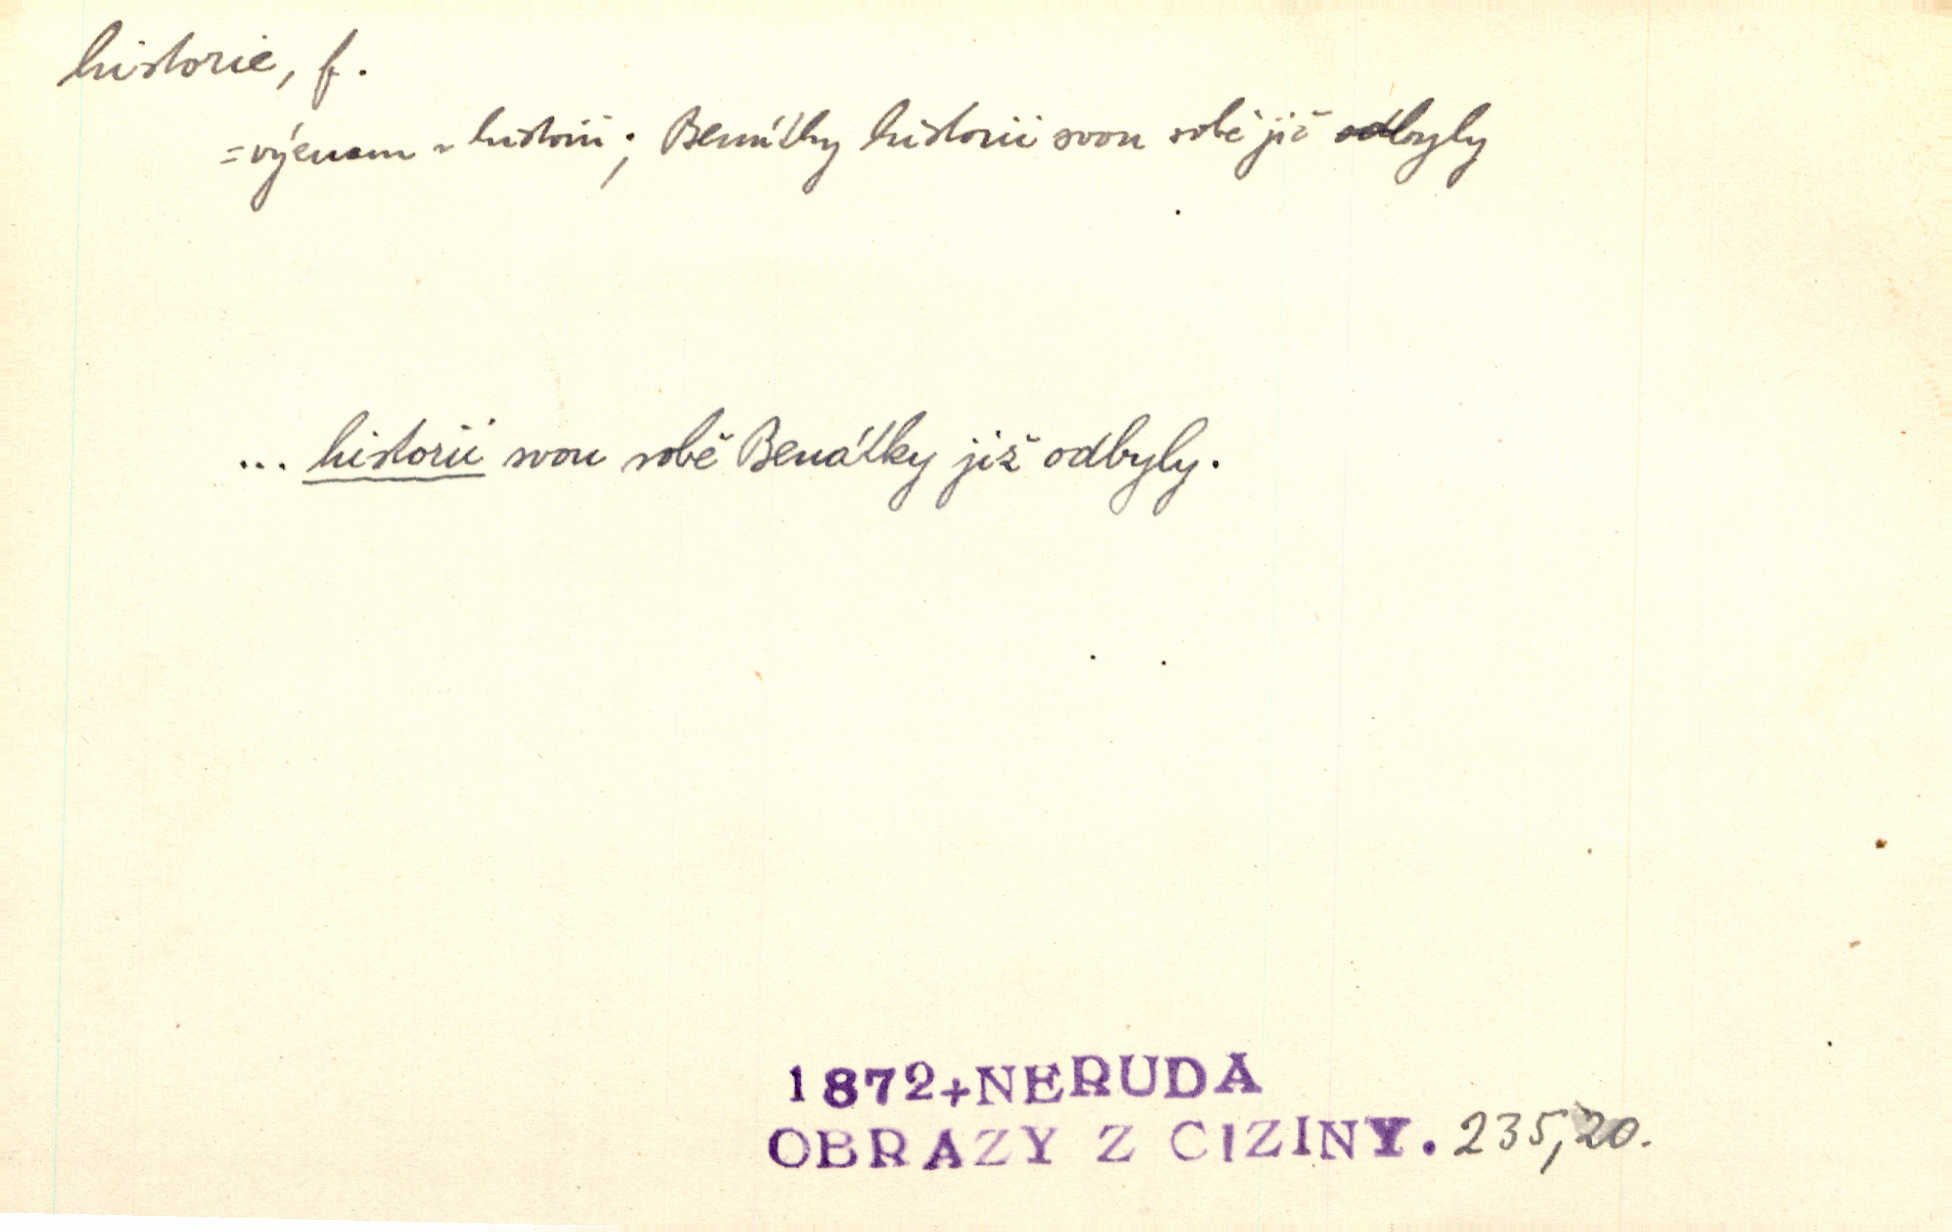 historie, f.
= význam v historii; Benátky historii svou sobě již odbyly
... historii svou sobě Benátky již odbyly.
1872+NERUDA
OBRAZY Z CIZINY. 235,20.